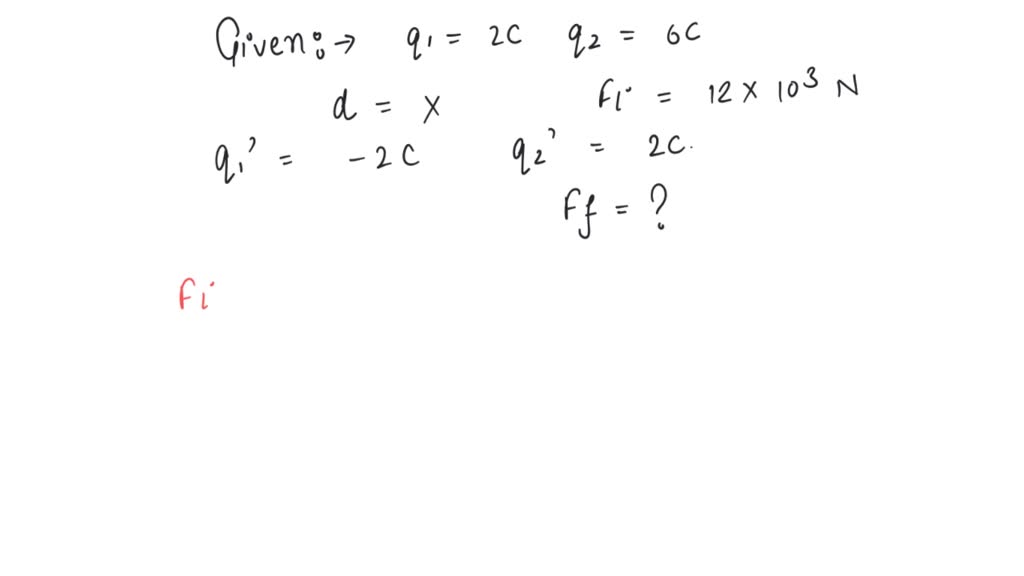 Given:→ q1 = 2C q2 = 6C
d = x Fi = 12 x 10³ N
q1' = -2C q2' = 2C.
Ff = ?
Fi